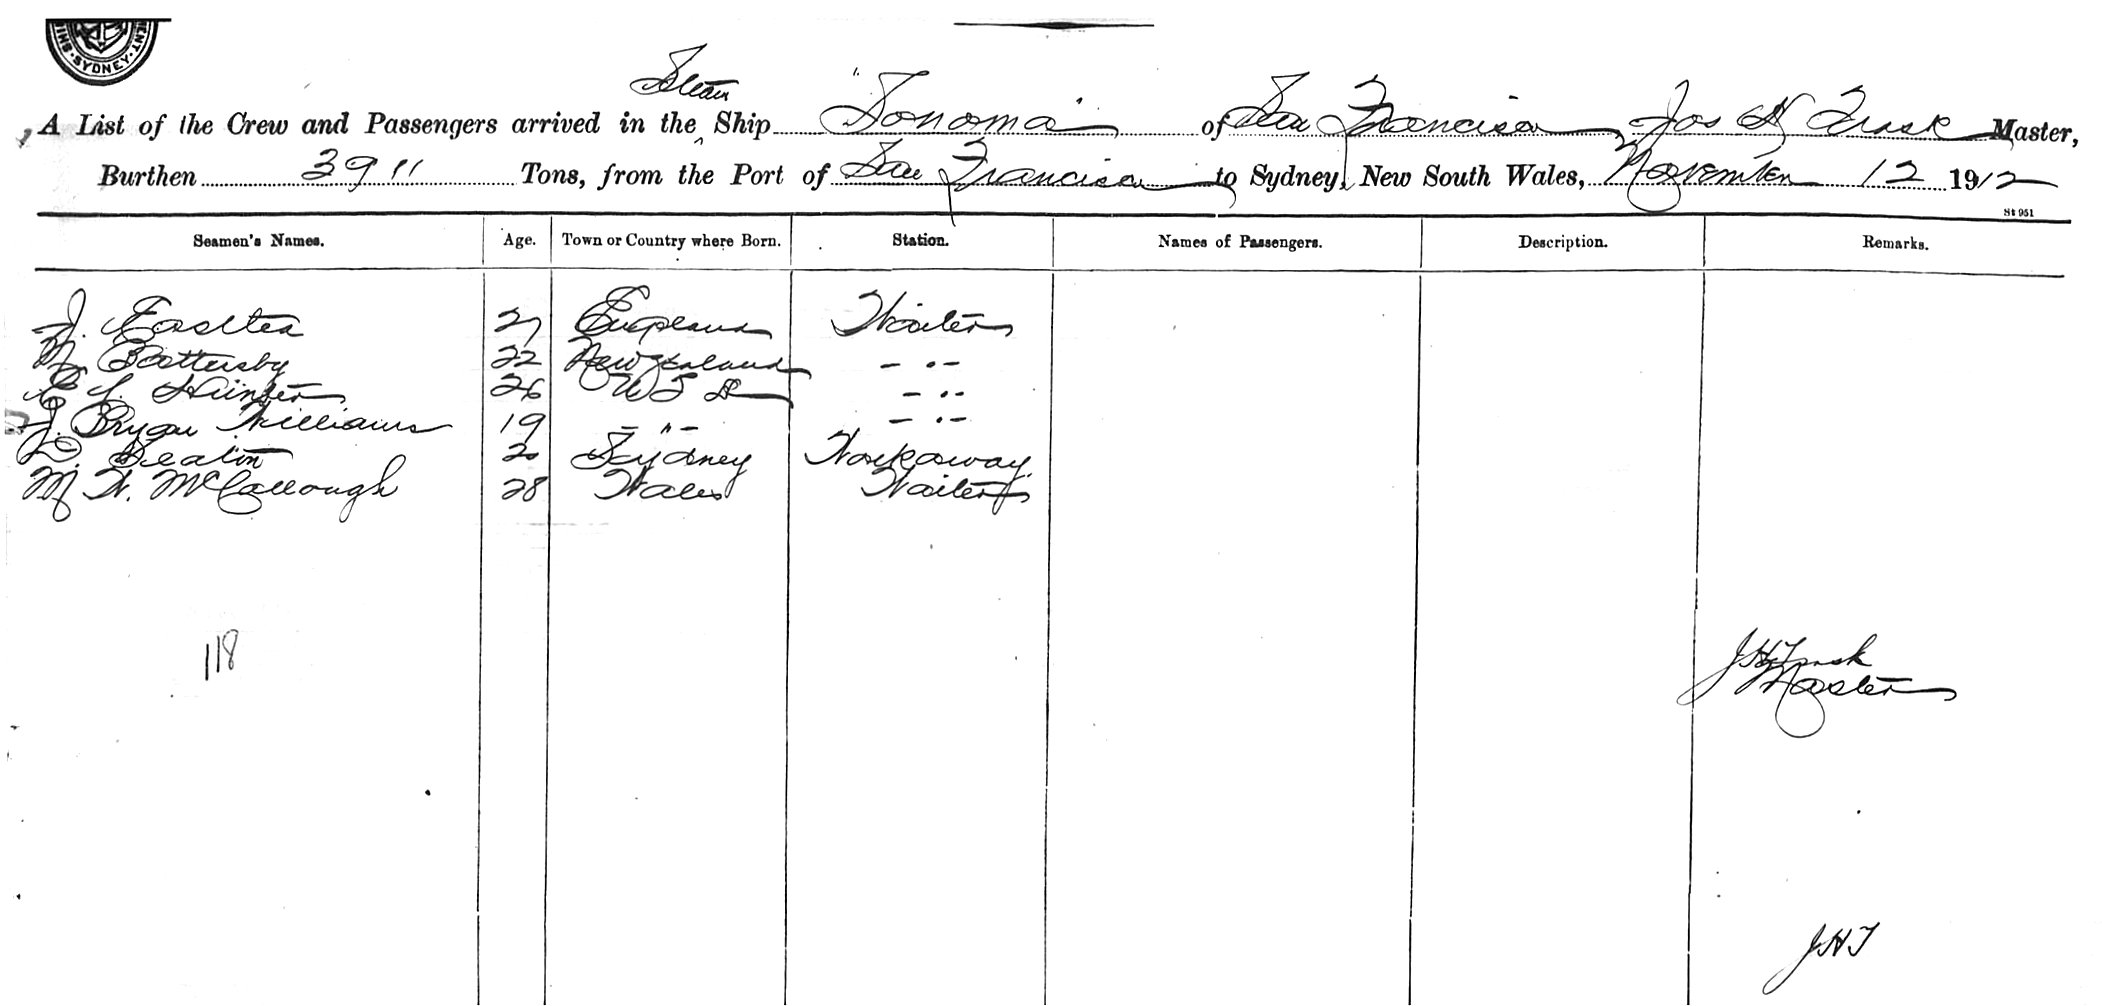 SYDNEY
Steam
A List of the Crew and Passengers arrived in the Ship "Sonoma" of San Francisco, Jos H Trask Master,
Burthen 3911 Tons, from the Port of San Francisco to Sydney, New South Wales, November 12 1912
St 951
Seamen's Names. Age. Town or Country where Born. Station. Names of Passengers. Description. Remarks.
J. 27 England Waiter
M Battersby 22 New Zealand - " -
E L. Hunter 26 U S A - " -
J. Bryan Williams 19 - " - - " -
D. Seaton 20 Sydney Workaway
M W. McCallough 28 Wales Waiter
118
J H Trask
Master
JHT